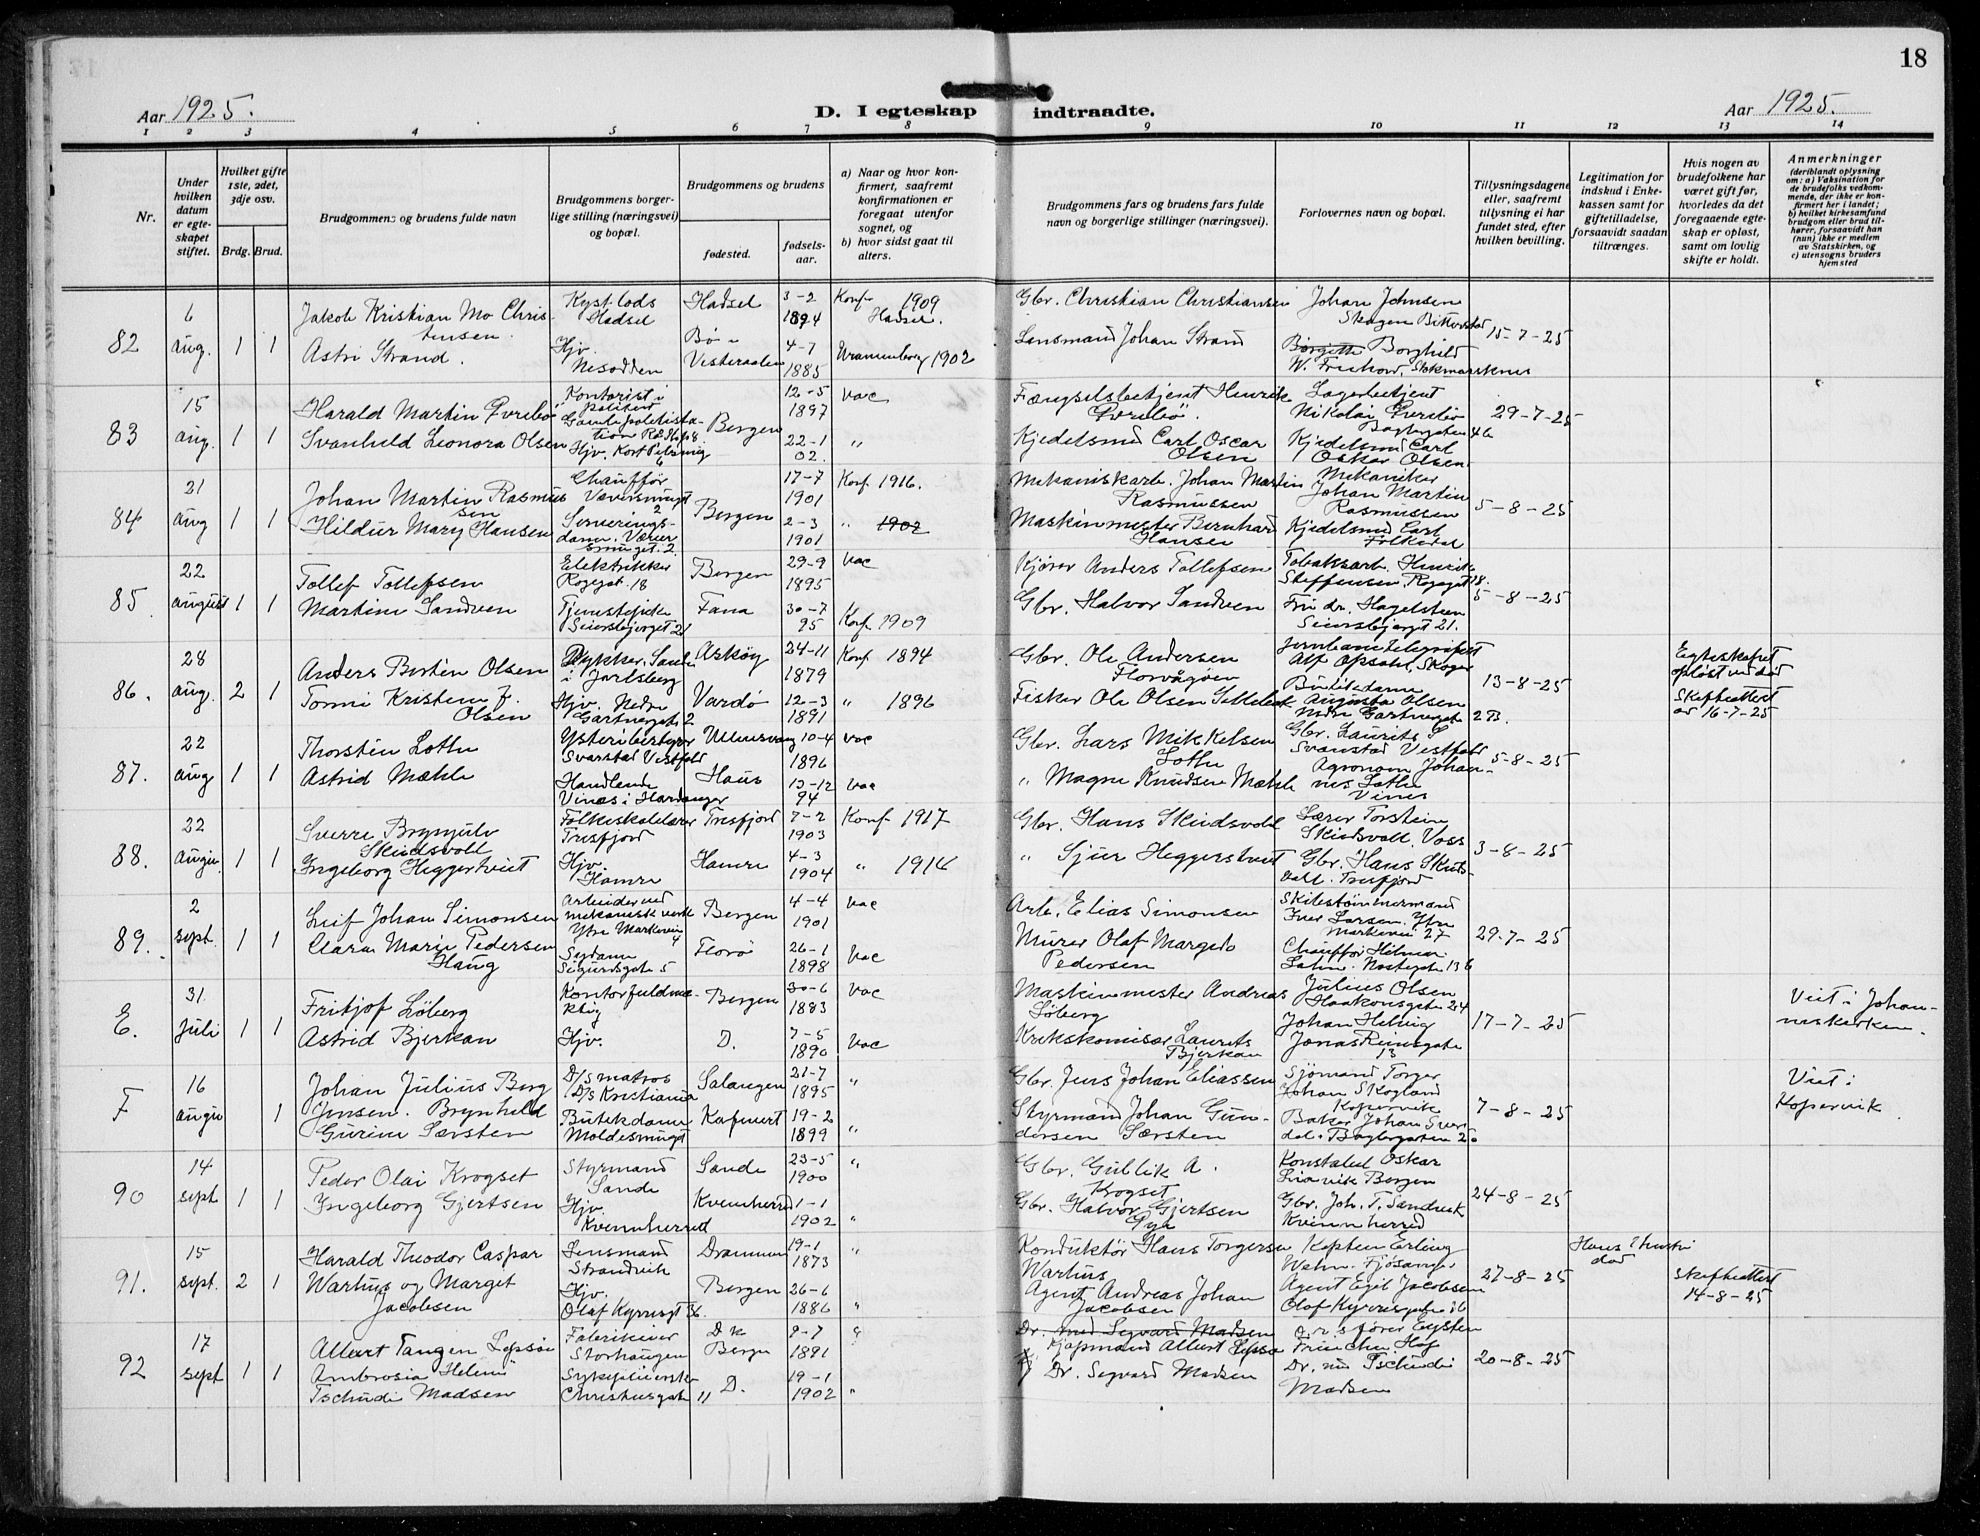 18
Aar 1925.
D. I egteskap indtraadte.
Aar 1925.
1 2 3 4 5 6 7 8 9 10 11 12 13 14
Nr.
Under hvilken datum er egte-skapet stiftet.
Hvilket gifte 1ste, 2det, 3dje osv.
Brdg. Brud.
Brudgommens og brudens fulde navn
Brudgommens borger-lige stilling (næringsvei) og bopæl.
Brudgommens og brudens
fødested.
fødsels-aar.
a) Naar og hvor kon-firmert, saafremt konfirmationen er foregaat utenfor sognet, og
b) hvor sidst gaat til alters.
Brudgommens fars og brudens fars fulde navn og borgerlige stillinger (næringsvei).
Forlovernes navn og bopæl.
Tillysningsdagene eller, saafremt tillysning ei har fundet sted, efter hvilken bevilling.
Legitimation for indskud i Enke-kassen samt for giftetilladelse, forsaavidt saadan tiltrænges.
Hvis nogen av brudefolkene har været gift før, hvorledes da det foregaaende egte-skap er opløst, samt om lovlig skifte er holdt.
Anmerkninger (deriblandt oplysning om: a) Vaksination for de brudefolks vedkom-mende, der ikke er kon-firmert her i landet; b) hvilket kirkesamfund brudgom eller brud til-hører, forsaavidt han (hun) ikke er medlem av Statskirken, og c) utensogns bruders hjemsted
82 6 aug. 1 1
Jakob Kristian Mo Chris-tensen.
Astri Strand.
Kystlods Hadsel
Hjv. Nesodden
Hadsel 3-2 1894
Bø - Vesteraalen 4-7 1885
Konf 1909 Hadsel.
1902
Gbr. Christian Christiansen
Lensmand Johan Strand
Johan Johnsen Skagen
Borghild
15-7-25
83 15 aug. 1 1
Harald Martin Øvrebø
Svanhild Leonora Olsen
Kontorist i politiet
Bergen
12-5 1897 vac
22-1 02. "
Fængselsbetjent Henrik Øvrebø.
Kjedelsmed Carl Oscar Olsen
Lagerbetjent Nikolai Øvrebø
Kjedelsmed Carl Oskar Olsen
29-7-25
84 21 aug 1 1
Johan Martin Rasmus-sen
Hildur Mary Hansen
Chauffør
Serverings-dame
Bergen
17-7 1901 Konf 1916.
2-3 1901 " 1902
Mekaniskarb. Johan Martin Rasmussen
Maskinmester Bernhard Hansen
Mekaniker Johan Martin Rasmussen
Kjedelsmed Carl
5-8-25
85. 22 august 1 1
Tollef Tollefsen
Martine Sandven
Elektrikker 18
Tjenestepike
Bergen 29-9 1895 vac
Fana 30-7 95 Konf 1909
Kjører Anders Tollefsen
Gbr. Halvor Sandven
Tobaksarb. Henrik Steffensen 18.
Fru dr. Hagelsteen 21.
5-8-25
86. 28 aug. 2 1
Anders Bertin Olsen
Tomi Kristine F. Olsen
Dykker, Sande i Jarlsberg
Hjv. Nedre Gartnergate 2
Askøy 24-11 1879 Konf 1894
Vardø 12-3 1891 " 1896
Gbr. Ole Andersen Florvågøen
Fisker Ole Olsen
Jernbanetelegrafist Alf Opsahl, Skoger
Butikdame Augusta Olsen Nedre Gartnergate 2B.
13-8-25
Egteskapet opløst ved død
Skifteattest av 16-7-25
87. 22 aug 1 1
Thorstein Lothe
Astrid Mæhle
Ysteribestyrer Svarstad Vestfold
Handlende Vines i Hardanger
Ullensvang 10-4 1896 vac
Haus 13-12 94 vac
Gbr. Lars Mikkelsen Lothe
" Magne Knudsen Mæhle
Gbr. Laurits S Svarstad Vestfold
Agronom Johan-nes Lothe Vines
5-8-25
88. 22 1 1
Sverre Brynjulv Skeidsvoll
Ingeborg Heggertveit
Folkeskolelærer Tresfjord
Hjv. Hamre
Tresfjord 7-2 1903 Konf 1917
Hamre 4-3 1904 "
Gbr. Hans Skeidsvoll
" Sjur Heggertveit
Lærer Torstein Skeidsvoll, Voss
Gbr. Hans Skeids-voll. Tresfjord
3-8-25
89. 2 sept. 1 1
Leif Johan Simonsen
Clara Marie Pedersen Haug
Arbeider ved mekanisk verk Ytre Markevei 4
Sydame Sigurdsgate 5
Bergen 4-4 1901 vac
Florø 26-1 1898 vac
Arb. Elias Simonsen
Murer Olaf Pedersen
Skibstømmermand Iver Larsen. Ytre Markevei 27
Chauffør Hilmar
29-7-25
E. 31. juli 1 1
Fritjof Løberg
Astrid Bjerkan
Hjv.
Bergen 30-6 1883 vac
D. 7-5 1890 vac
Maskinmester Andreas Løberg
Laurits Bjerkan
Julius Olsen Haakonsgaten 24
Johan Jonas Reinsgate 13
17-7-25
Viet i Johan-neskirken.
F 16 1
Johan Julius Berg Jensen. Brynhild Gurine Sørsten
D/S matros D/S Kristiania
Butikdame
Salangen 21-7 1895 "
19-2 1899 "
Gbr. Jens Johan Eliassen
Styrmand Johan Gun-dersen Sørsten
Sjømand Torger Johan Skogland Kopervik
Baker Johan
7-8-25
Viet i Kopervik.
90 14 sept 1 1
Peder Olai Krogset
Ingeborg Gjertsen
Styrmand Sande
Hjv. Kvennherred
Sande 23-5 1900 "
Kvennherred 1-1 1902 "
Gbr. Gullik A. Krogset
Gbr. Halvor Gjertsen
Konstabel Oskar Bergen
Gbr. Joh. T. Sandvik Kvinnherred
24-8-25
91. 15 sept. 2 1
Harald Theodor Caspar Wartus og Marget Jacobsen
Lensmand Strandvik
Hjv. Olaf Kyrresgt 36.
Drammen 19-1 1873 "
Bergen 26-6 1886 "
Konduktør Hans Torgersen Wartus
Agent Andreas Johan Jacobsen
Kaptein Erling Fjøsanger
Agent Egil Jacobsen Olaf Kyrresgate
27-8-25
død
Skifteattest 14-8-25
92 17 sept 1 1
Albert Tangen Lepsøe
Ambrosia Helene Tschudi Madsen
Fabrikeier Storhaugen
Christiesgate 11
Bergen 9-7 1891
D. 19-1 1902 "
Dr. med Segvard Madsen
Kjøpmand Albert Lepsøe
Dr. Segvard Madsen
Dr. med Tschudi Madsen
20-8-25